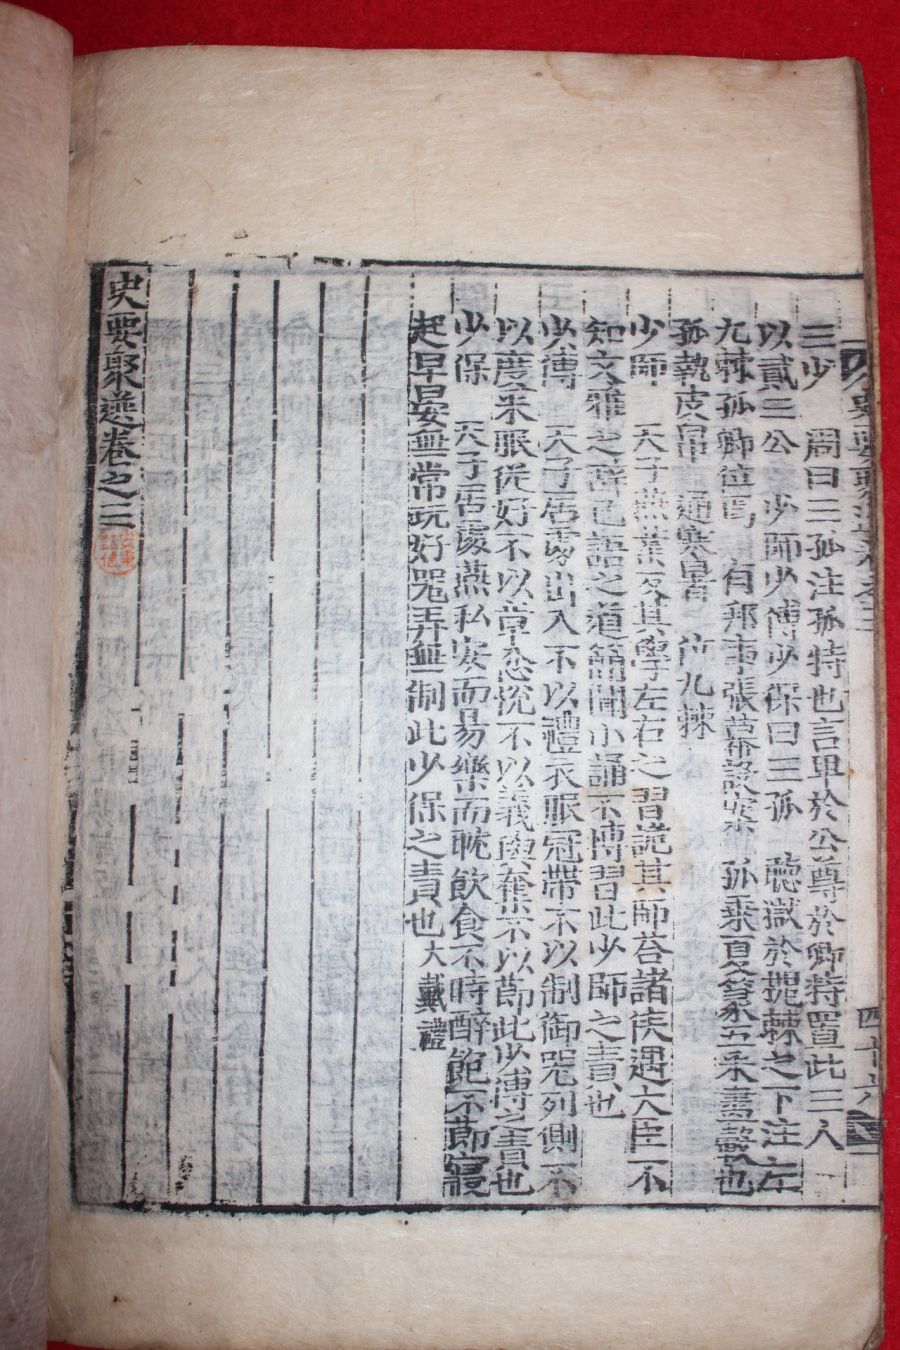 三少　周曰三孤注孤特也言卑於公尊於卿特置此三人
以貳三公　少師少傅少保曰三孤　聴獄於槐棘之下注左
九棘孤卿位焉　有邦事張幕設安　孤乘夏篆五采畫轂也
孤執皮帛　通寒暑　位九棘
少師　天子燕業反其學左右之習詭其師荅諸侯遇大臣不
知文雅之辞已諾之道簡聞小誦不博習此少師之責也
少傅　天子居處出入不以禮衣服冠帶不以制御器列側不
以度采服從好不以章忿悅不以義與奪不以節此少傅之責也
少保　天子居處燕私安而易樂而耽飲食不時醉飽不節寢
起早晏無常玩好器弄無制此少保之責也大戴禮
史要聚選卷之三
四十六